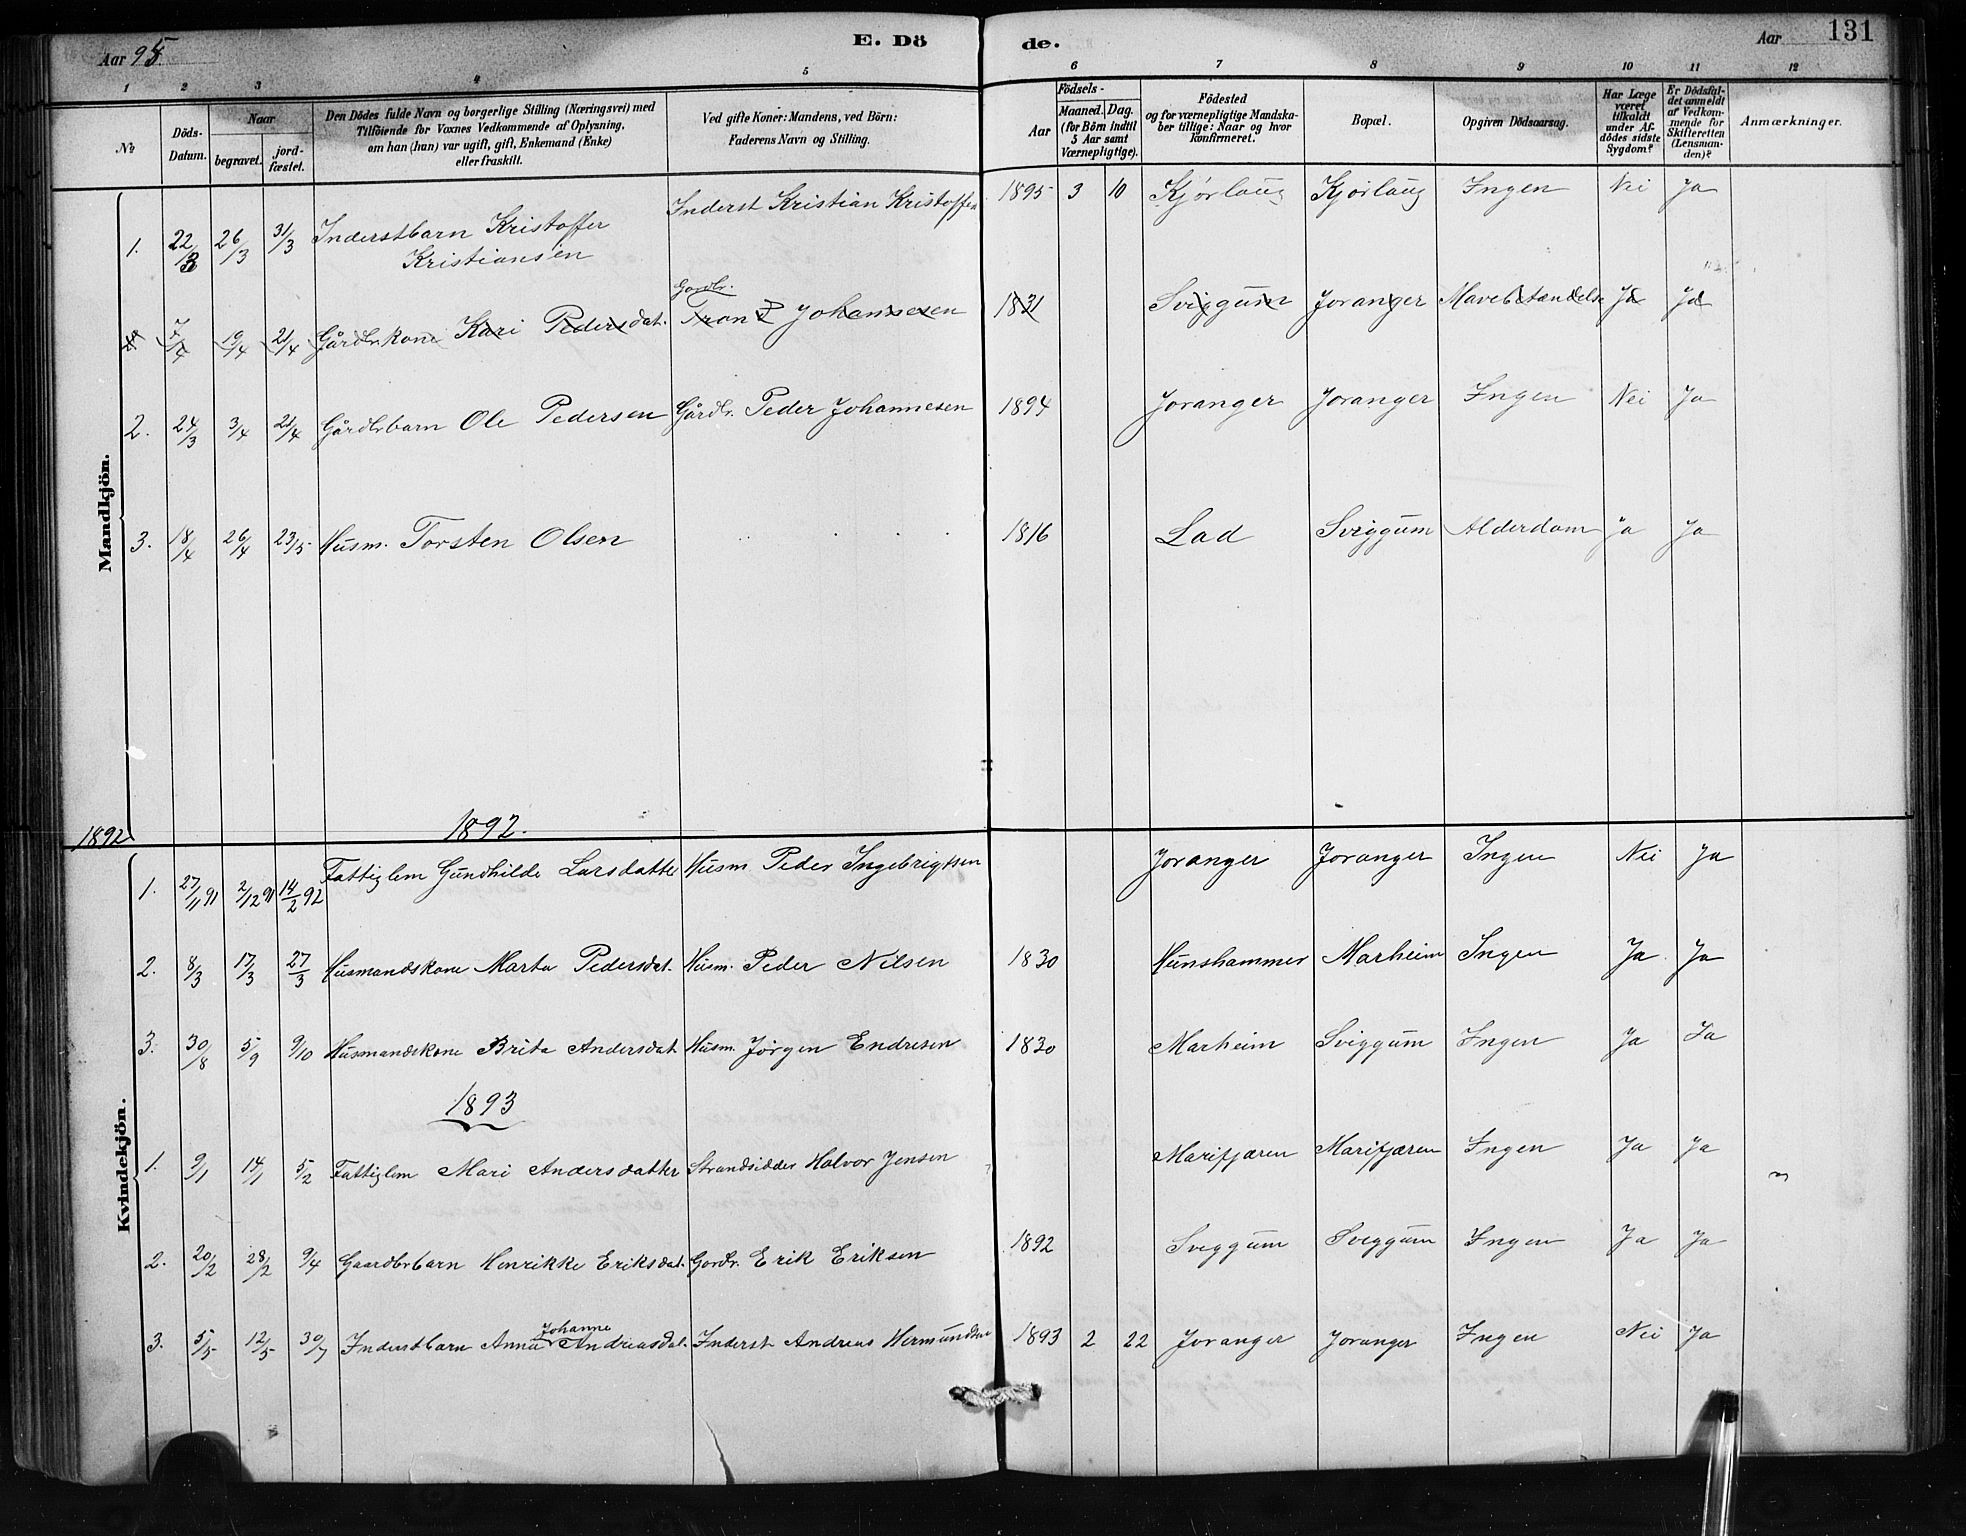 Aar 95
E. Dö
de.
Aar
131
1 2 3 4 5 6 7 8 9 10 11 12
№
Döds-Datum.
Naar
begravet.
jord-fæstet.
Den Dödes fulde Navn og borgerlige Stilling (Næringsvei) med
Tilföiende for Voxnes Vedkommende af Oplysning,
om han (hun) var ugift, gift, Enkemand (Enke)
eller fraskilt.
Ved gifte Koner: Mandens, ved Börn:
Faderens Navn og Stilling.
Födsels-
Aar
Maaned. Dag.
(for Börn indtil
5 Aar samt
Værnepligtige).
Födested
og for værnepligtige Mandska-
ber tillige: Naar og hvor
konfirmeret.
Bopæl.
Opgiven Dödsaarsag.
Har Læge
været
tilkaldt
under Af-
dödes sidste
Sygdom?
Er Dödsfal-
det anmeldt
af Vedkom-
mende for
Skifteretten
(Lensman-
den)?
Anmærkninger.
Mandkjön.
1. 22/3 26/3 31/3 Inderstbarn Kristoffer Inderst Kristian Kristoffersen 1895 3 10 Kjørlaug Kjørlaug Ingen Nei Ja
Kristiansen
Gardbr.
2 7/4 19/4 21/4 Gårdbrkone Kari Pedersdat. Trond Johannesen 1831 Sviggum Joranger Mavebetændelse Ja Ja
2. 24/3 3/4 21/4 Gårdbrbarn Ole Pedersen Gårdbr. Peder Johannesen 1894 Joranger Joranger Ingen Nei Ja
3. 18/4 26/4 23/5 Husm. Torsten Olsen 1816 Lad Sviggum Alderdom Ja Ja
1892 1892.
Kvindekjön.
1. 27/11 91 2/12 91 14/2 92 Fattiglem Gunhilde Larsdatter Husm Peder Ingebrigtsen Joranger Joranger Ingen Nei Ja
2. 8/3 17/3 27/3 Husmandskone Marta Pedersdat. Husm. Peder Nilsen 1830 Hunshammer Marheim Ingen Ja Ja
3. 30/8 5/9 9/10 Husmandskone Brita Andersdat. Husm. Jörgen Endresen 1830 Marheim Sviggum Ingen Ja Ja
1893
1. 9/1 14/1 5/2 Fattiglem Mari Andersdatter Strandsidder Halvor Jensen Marifjæren Marifjæren Ingen Ja Ja
2. 20/2 28/2 9/4 Gaardbrbarn Henrikke Eriksdat. Gardbr. Erik Eriksen 1892 Sviggum Sviggum Ingen Ja Ja
Johanne
3. 5/5 12/5 30/7 Inderstbarn Anna Andreasdat. Inderst Andreas Hermundsen 1893 2 22 Joranger Joranger Ingen Nei Ja